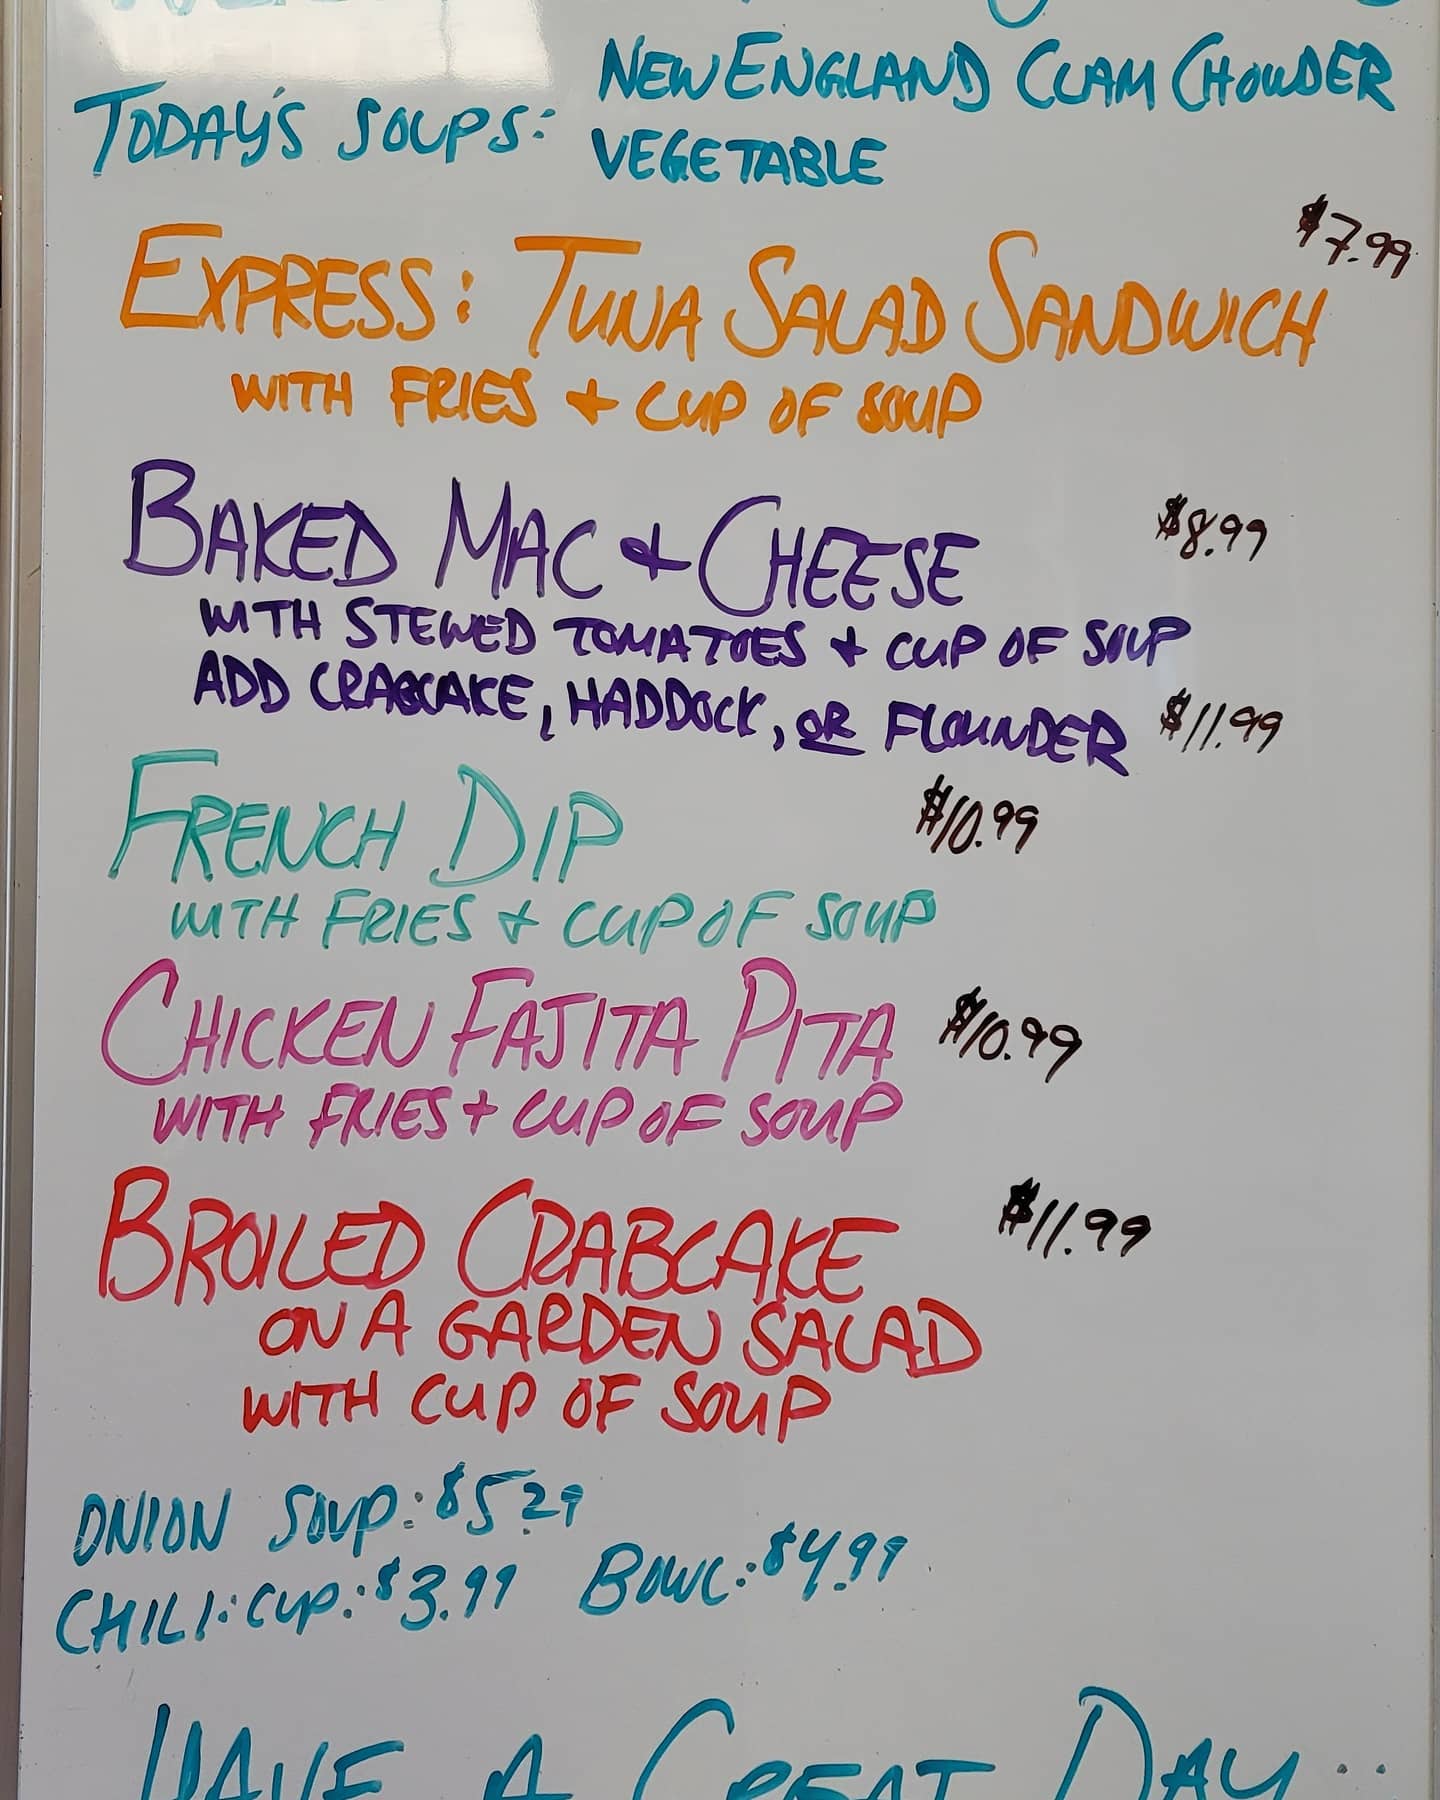 NEW ENGLAND CLAM CHOWDER
TODAY'S SOUPS:
VEGETABLE
$7.99
EXPRESS: TUNA SALAD SANDWICH
WITH FRIES + CUP OF SOUP
BAKED MAC + CHEESE $8.99
WITH STEWED TOMATOES + CUP OF SOUP
ADD CRABCAKE, HADDOCK, OR FLOUNDER $11.99
FRENCH DIP $10.99
WITH FRIES + CUP OF SOUP
CHICKEN FAJITA PITA $10.99
WITH FRIES + CUP OF SOUP
BROILED CRABCAKE $11.99
ON A GARDEN SALAD
WITH CUP OF SOUP
ONION SOUP: $5.29
CHILI: CUP: $3.99 BOWL: $4.99
HAVE A GREAT DAY...